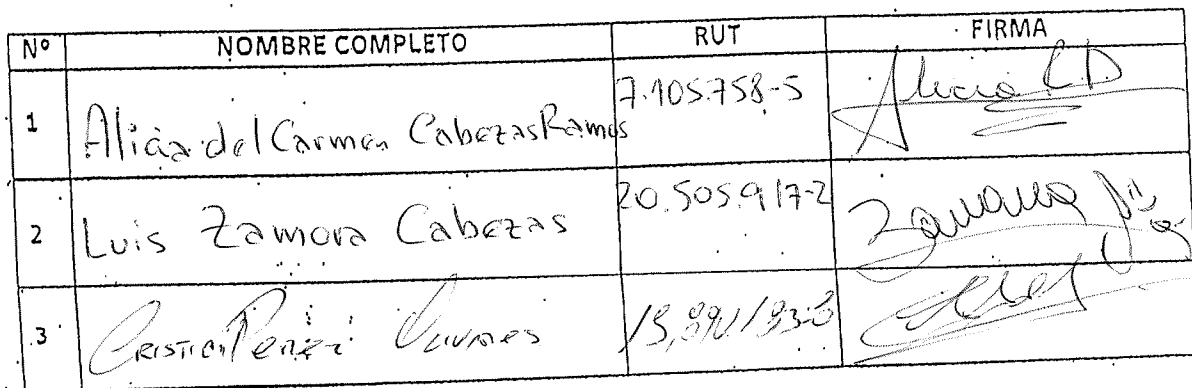 Nº NOMBRE COMPLETO RUT FIRMA
1 Alicia del Carmen Cabezas Ramos 7.105.758-5 Alicia
2 Luis Zamora Cabezas 20.505.917-2 Zamora
3 Cristian Perez